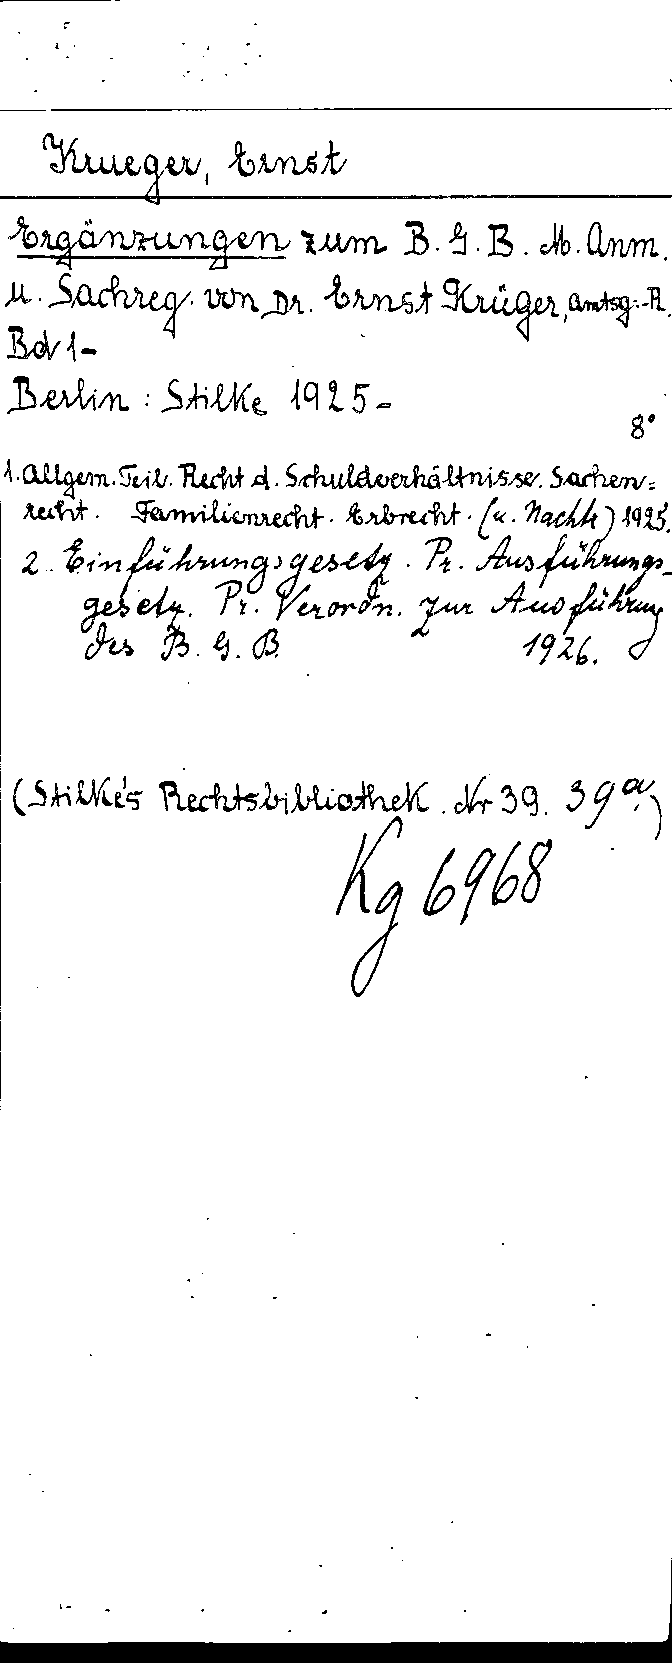 Krueger, Ernst
Ergänzungen zum B. G. B. M. Anm.
u. Sachreg. von Dr. Ernst Krüger, Amtsg.-R.
Bd 1-
Berlin : Stilke 1925-
8°
1. Allgem. Teil. Recht d. Schuldverhältnisse. Sachen=
recht. Familienrecht. Erbrecht. (u. Nachtr) 1925.
2. Einführungsgesetz. Pr. Ausführungs-
gesetz. Pr. Verordn. zur Ausführung
des B. G. B. 1926.
(Stilke's Rechtsbibliothek. Nr 39. 39a.)
Kg 6968